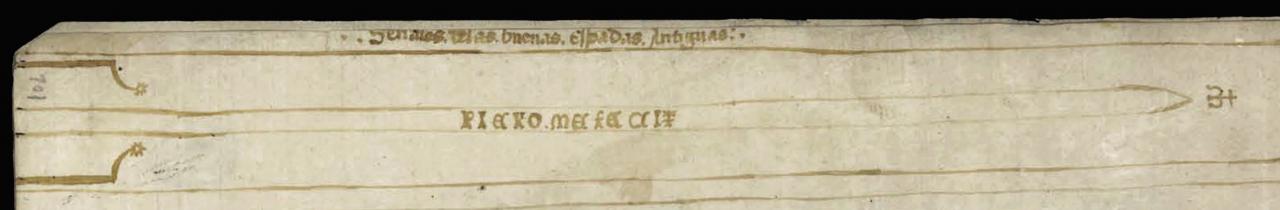 Señales. de las. buenas. espadas. Antiguas:.
PIERO. ME FECCIT